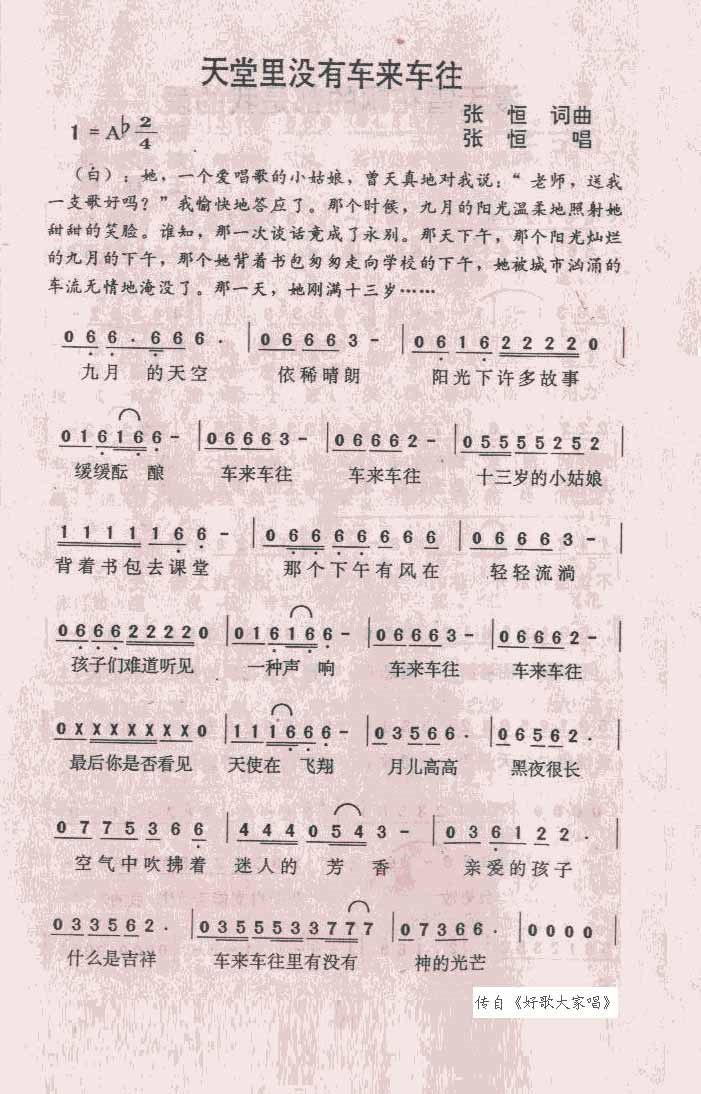 天堂里没有车来车往
1 = A♭ 2/4
张 恒 词曲
张 恒 唱
（白）：她，一个爱唱歌的小姑娘，曾天真地对我说：“老师，送我
一支歌好吗？”我愉快地答应了。那个时候，九月的阳光温柔地照射她
甜甜的笑脸。谁知，那一次谈话竟成了永别。那天下午，那个阳光灿烂
的九月的下午，那个她背着书包匆匆走向学校的下午，她被城市汹涌的
车流无情地淹没了。那一天，她刚满十三岁……
0 6 6 . 6 6 6 . | 0 6 6 6 3 - | 0 6 1 6 2 2 2 2 0 |
九月 的天空 依稀晴朗 阳光下许多故事
0 1 6 1 6 6 - | 0 6 6 6 3 - | 0 6 6 6 2 - | 0 5 5 5 5 2 5 2 |
缓缓酝 酿 车来车往 车来车往 十三岁的小姑娘
1 1 1 1 1 6 6 - | 0 6 6 6 6 6 6 6 | 0 6 6 6 3 - |
背着书包去课堂 那个下午有风在 轻轻流淌
0 6 6 6 2 2 2 2 0 | 0 1 6 1 6 6 - | 0 6 6 6 3 - | 0 6 6 6 2 - |
孩子们难道听见 一种声 响 车来车往 车来车往
0 X X X X X X X 0 | 1 1 1 6 6 6 - | 0 3 5 6 6 . | 0 5 6 2 2 . |
最后你是否看见 天使在 飞翔 月儿高高 黑夜很长
0 7 7 5 3 6 6 | 4 4 4 0 5 4 3 - | 0 3 6 1 2 2 . |
空气中吹拂着 迷人的 芳 香 亲爱的孩子
0 3 3 5 6 2 . | 0 3 5 5 5 3 3 7 7 7 | 0 7 3 6 6 . | 0 0 0 0 |
什么是吉祥 车来车往里有没有 神的光芒
传自《好歌大家唱》